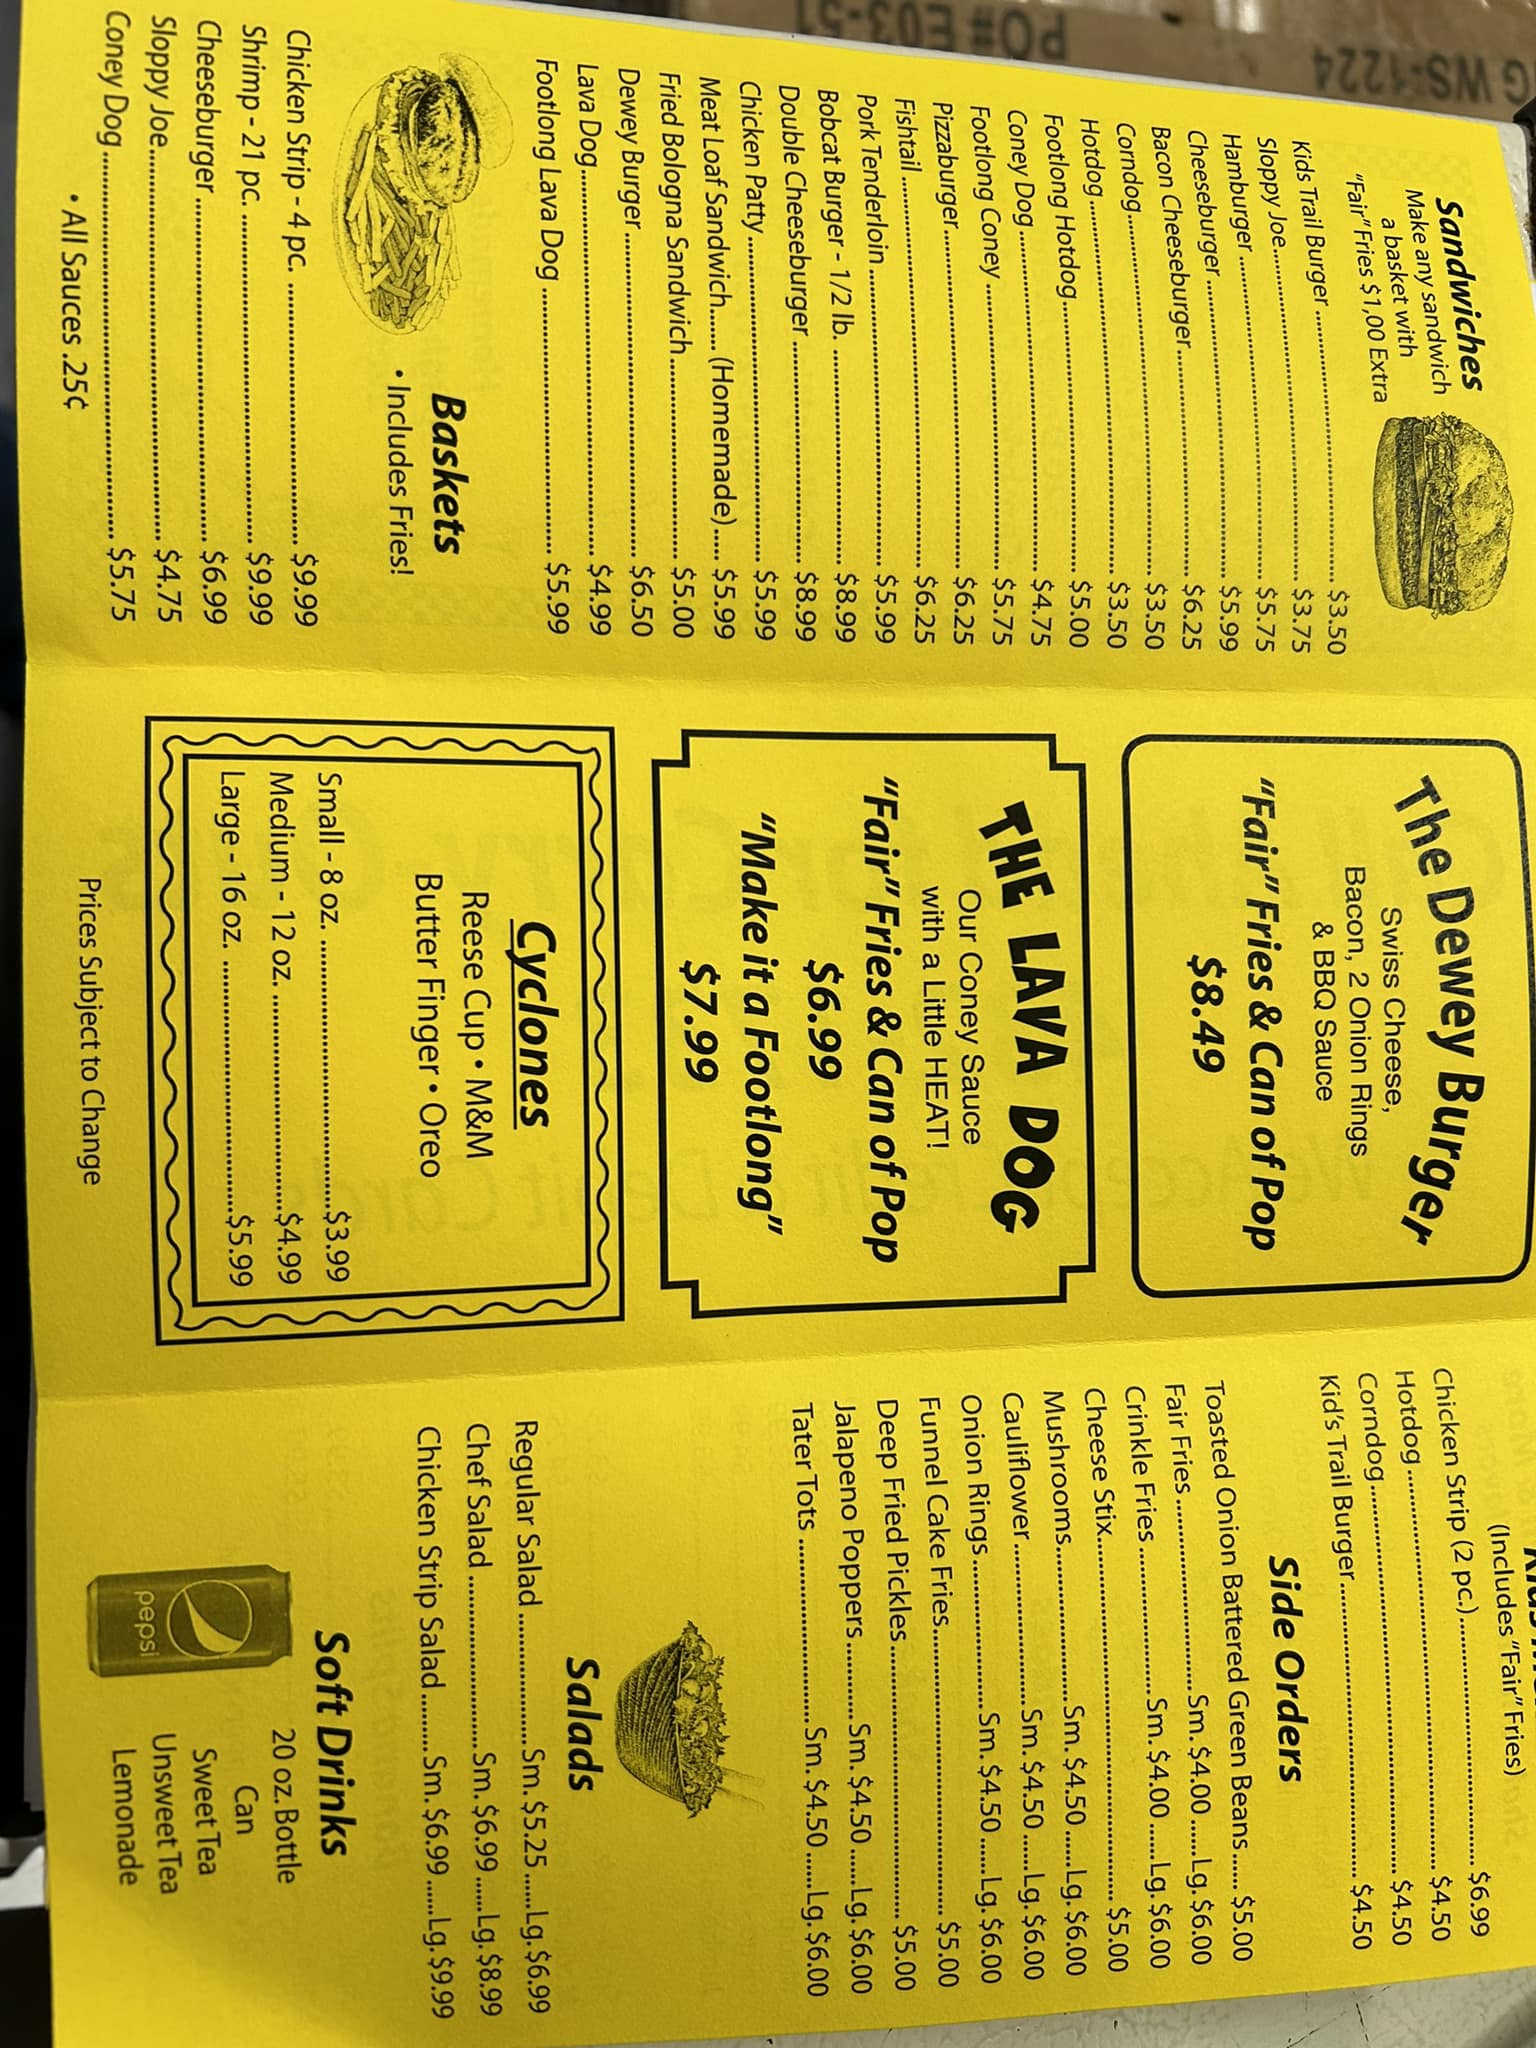 Sandwiches
Make any sandwich
a basket with
"Fair" Fries $1,00 Extra
Kids Trail Burger ........ $3.50
Sloppy Joe........ $3.75
Hamburger ........ $5.75
Cheeseburger ........ $5.99
Bacon Cheeseburger........ $6.25
Corndog........ $3.50
Hotdog........ $3.50
Footlong Hotdog........ $5.00
Coney Dog........ $4.75
Footlong Coney ........ $5.75
Pizzaburger........ $6.25
Fishtail........ $6.25
Pork Tenderloin ........ $5.99
Bobcat Burger - 1/2 lb. ........ $8.99
Double Cheeseburger ........ $8.99
Chicken Patty........ $5.99
Meat Loaf Sandwich...... (Homemade).... $5.99
Fried Bologna Sandwich........ $5.00
Dewey Burger........ $6.50
Lava Dog........ $4.99
Footlong Lava Dog ........ $5.99
Baskets
• Includes Fries!
Chicken Strip - 4 pc. ........ $9.99
Shrimp - 21 pc. ........ $9.99
Cheeseburger ........ $6.99
Sloppy Joe........ $4.75
Coney Dog........ $5.75
• All Sauces .25¢
The Dewey Burger
Swiss Cheese,
Bacon, 2 Onion Rings
& BBQ Sauce
"Fair" Fries & Can of Pop
$8.49
THE LAVA DOG
Our Coney Sauce
with a Little HEAT!
"Fair" Fries & Can of Pop
$6.99
"Make it a Footlong"
$7.99
Cyclones
Reese Cup • M&M
Butter Finger • Oreo
Small - 8 oz. ........$3.99
Medium - 12 oz. ........$4.99
Large - 16 oz. ........$5.99
Prices Subject to Change
(Includes "Fair" Fries)
Chicken Strip (2 pc.)........ $6.99
Hotdog........ $4.50
Corndog........ $4.50
Kid's Trail Burger........ $4.50
Side Orders
Toasted Onion Battered Green Beans...... $5.00
Fair Fries ........Sm. $4.00 ......Lg. $6.00
Crinkle Fries ........Sm. $4.00 ......Lg. $6.00
Cheese Stix........ $5.00
Mushrooms........Sm. $4.50 ......Lg. $6.00
Cauliflower........Sm. $4.50 ......Lg. $6.00
Onion Rings........Sm. $4.50 ......Lg. $6.00
Funnel Cake Fries........ $5.00
Deep Fried Pickles........ $5.00
Jalapeno Poppers........Sm. $4.50 ......Lg. $6.00
Tater Tots ........Sm. $4.50 ......Lg. $6.00
Salads
Regular Salad ........Sm. $5.25 ......Lg. $6.99
Chef Salad ........Sm. $6.99 ......Lg. $8.99
Chicken Strip Salad........Sm. $6.99 ......Lg. $9.99
Soft Drinks
20 oz. Bottle
Can
Sweet Tea
Unsweet Tea
Lemonade
pepsi
WS-1224
PO# E03-51